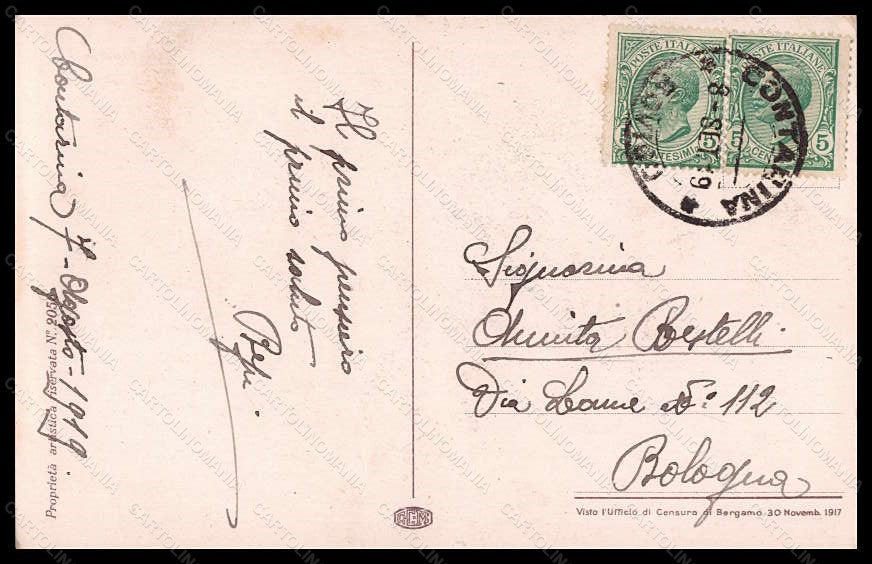 Contarina 7 - Agosto - 1919.
Proprietà artistica riservata N.º 205
Il primo pensiero
il primo saluto
Bepi.
POSTE ITALIANE
CENTESIMI 5
POSTE ITALIANE
5 CENT
CONTARINA
8 - 19
Signorina
Annita Bestelli.
Via Lame N.º 112
Bologna
GGM
Visto l'Ufficio di Censura di Bergamo 30 Novemb. 1917
CARTOLINOMANIA